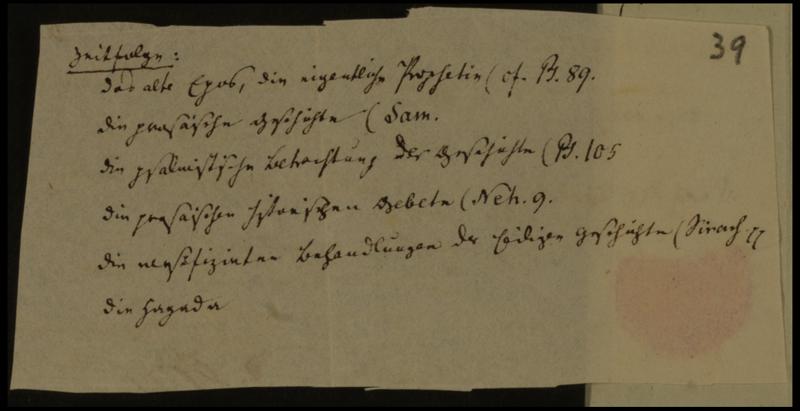 39
Zeitfolge:
das alte Epos, die eigentliche Prophetie (cf. Ps. 89.
die prosaische Geschichte (Sam.
die psalmistische Betrachtung der Geschichte (Ps. 105
die prosaischen historischen Gebete (Neh. 9.
die versifizirten Behandlungen der heiligen Geschichte (Sirach pp
die Hagada